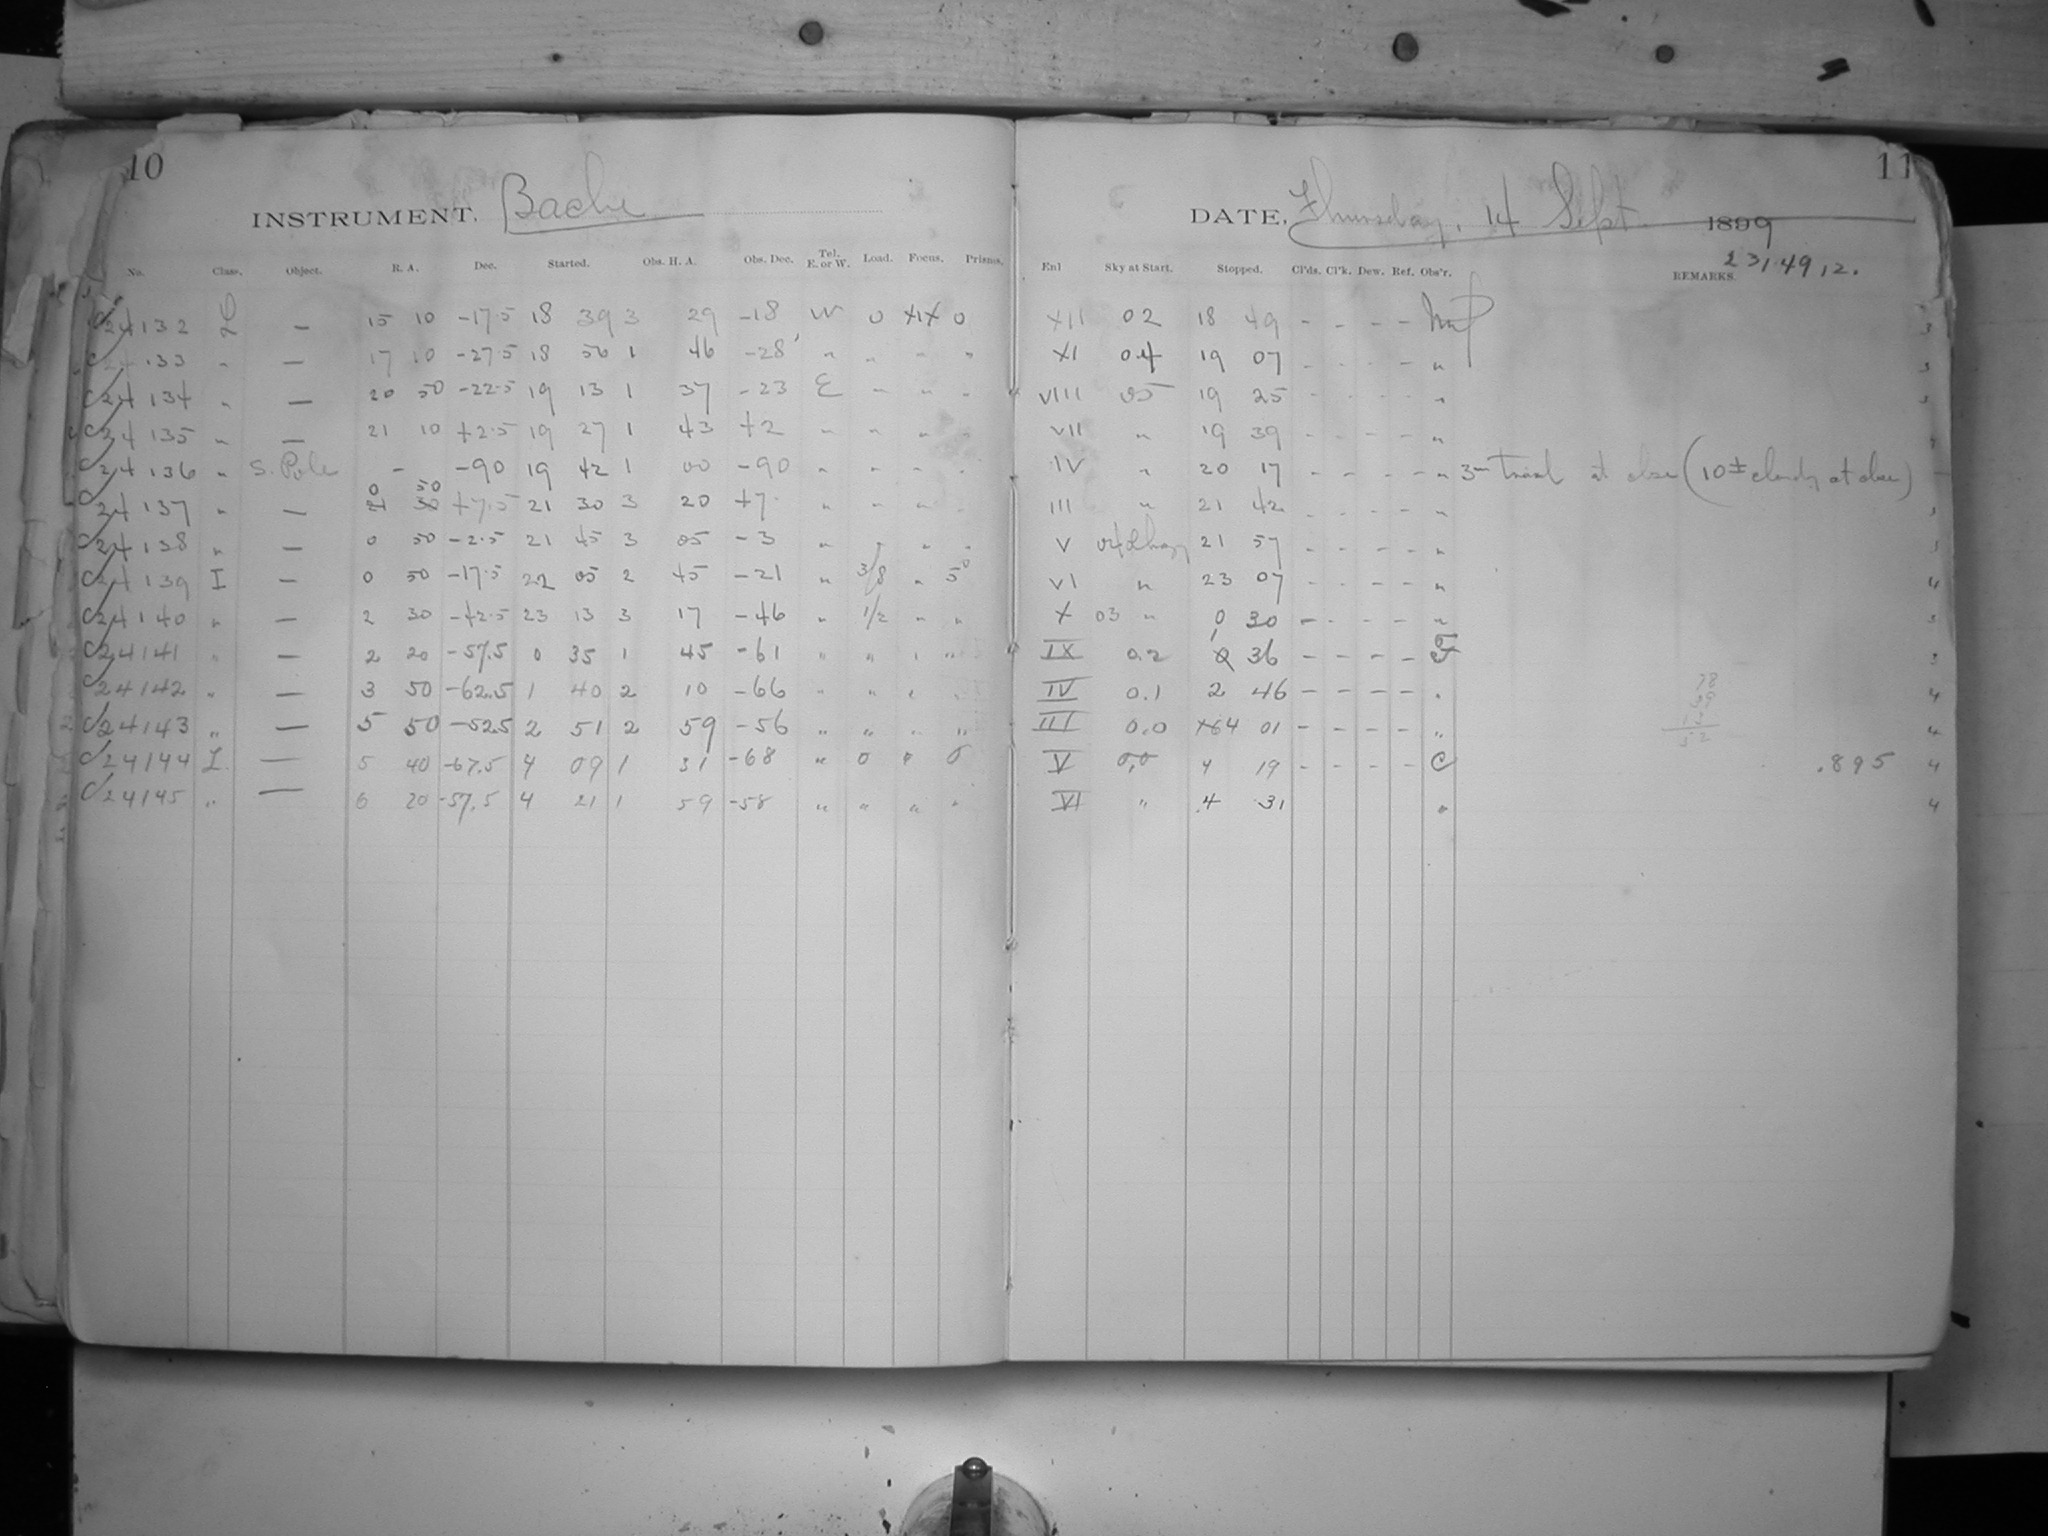 10
INSTRUMENT. Bache
No. Class. Object. R. A. Dec. Started. Obs. H. A. Obs. Dec. Tel. E. or W. Load. Focus. Prisms.
C24132 L — 15 10 -17.5 18 39 3 29 -18 W 0 XIX 0
C24133 " — 17 10 -27.5 18 56 1 46 -28 " " " "
C24134 " — 20 50 -22.5 19 13 1 37 -23 E " " "
C24135 " — 21 10 +2.5 19 27 1 43 +2 " " " "
C24136 " S. Pole - -90 19 42 1 00 -90 " " " "
C24137 " — 0 50 +7.5 21 30 3 20 +7 " " " "
C24138 " — 0 50 -2.5 21 45 3 05 -3 " " " "
C24139 I — 0 50 -17.5 22 05 2 45 -21 " 3/8 " 5°
C24140 " — 2 30 -42.5 23 13 3 17 -46 " 1/2 " "
C24141 " — 2 20 -57.5 0 35 1 45 -61 " " " "
C24142 " — 3 50 -62.5 1 40 2 10 -66 " " "
C24143 " — 5 50 -52.5 2 51 2 59 -56 " " " "
C24144 L — 5 40 -67.5 4 09 1 31 -68 " 0 " 0
C24145 " — 6 20 -57.5 4 21 1 59 -58 " " " "
11
DATE, Thursday, 14 Sept. 1899
23 1.49 12.
Enl Sky at Start. Stopped. Cl'ds. Cl'k. Dew. Ref. Obs'r. REMARKS.
XII 02 18 49 - - - - 3
XI 04 19 07 - - - - " 3
VIII 05 19 25 - - - - " 3
VII " 19 39 - - - - "
IV " 20 17 - - - - " 3m trail at close (10± cloudy at close)
III " 21 42 - - - - " 3
V 04 & hazy 21 57 - - - - " 3
VI " 23 07 - - - - " 4
X 03 " 0 30 - - - - " 3
IX 0.2 1 36 - - - - F 3
IV 0.1 2 46 - - - - " 4
III 0.0 4 01 - - - - " 4
V 0,0 4 19 - - - - C .895 4
VI " 4 31 " 4